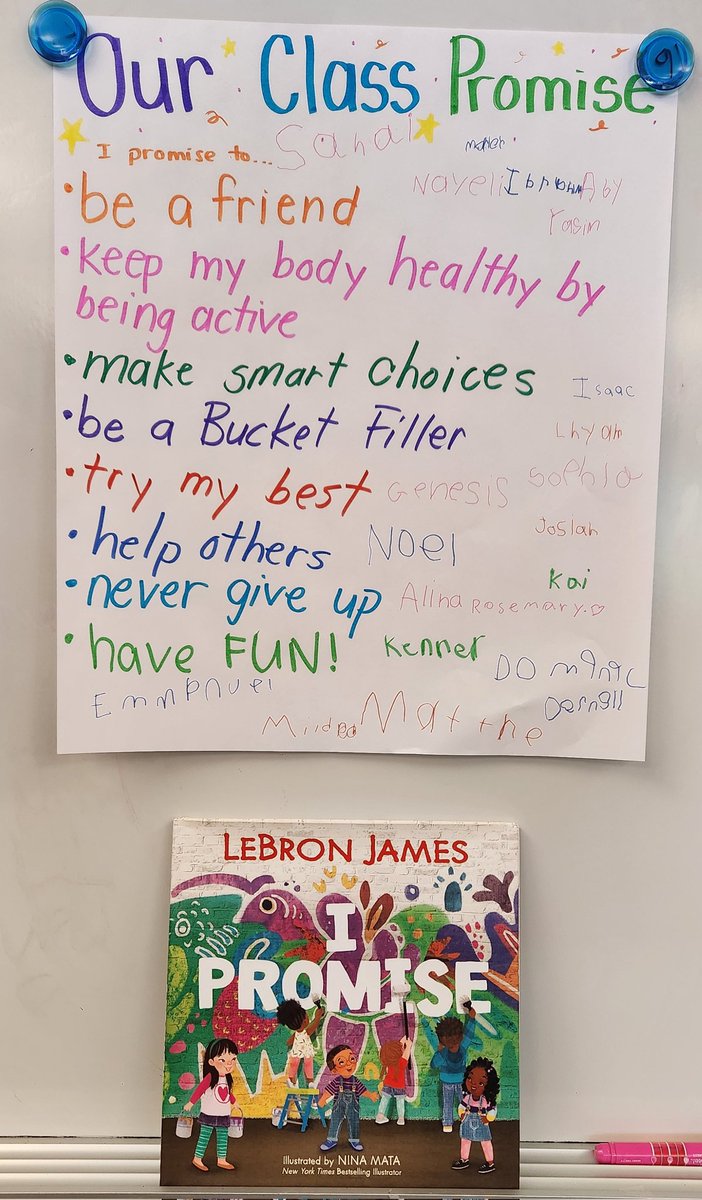 Our Class Promise
I promise to...
Sanai
Nayeli
Ibrahim
Aby
Yasin
• be a friend
• keep my body healthy by
being active
• make smart choices
Isaac
• be a Bucket Filler
Lhyam
• try my best
Genesis
Sophia
Josiah
• help others
Noel
Kai
• never give up
Alina
Rosemary.♡
• have FUN!
Kenner
Emmanuel
Matthe
LEBRON JAMES
I
PROMISE
Illustrated by NINA MATA
New York Times Bestselling Illustrator